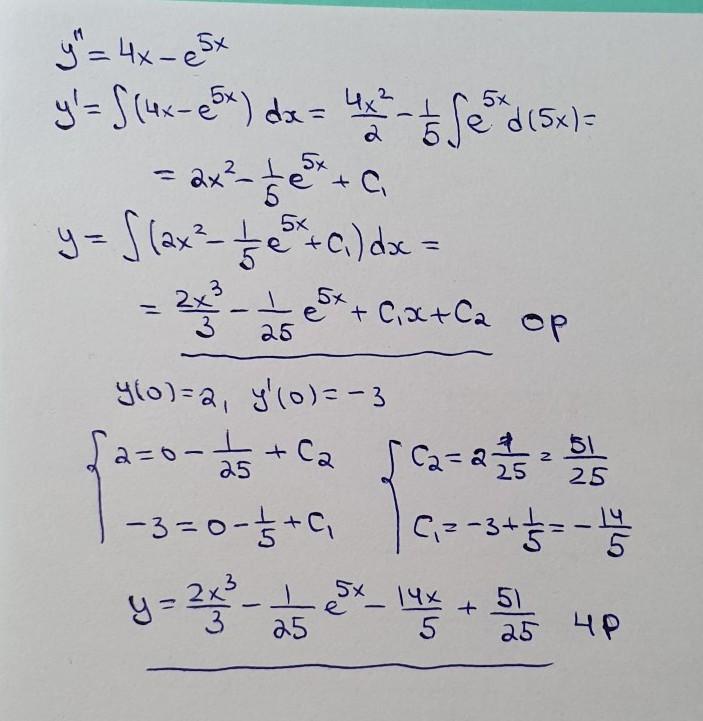 y'' = 4x - e^{5x}
y' = ∫(4x - e^{5x}) dx = \frac{4x^2}{2} - \frac{1}{5} ∫e^{5x} d(5x) =
= 2x^2 - \frac{1}{5} e^{5x} + C_1
y = ∫(2x^2 - \frac{1}{5} e^{5x} + C_1) dx =
= \frac{2x^3}{3} - \frac{1}{25} e^{5x} + C_1x + C_2 ор
y(0) = 2, y'(0) = -3
{ 2 = 0 - \frac{1}{25} + C_2 { C_2 = 2\frac{1}{25} = \frac{51}{25}
-3 = 0 - \frac{1}{5} + C_1 C_1 = -3 + \frac{1}{5} = -\frac{14}{5}
y = \frac{2x^3}{3} - \frac{1}{25} e^{5x} - \frac{14x}{5} + \frac{51}{25} чр